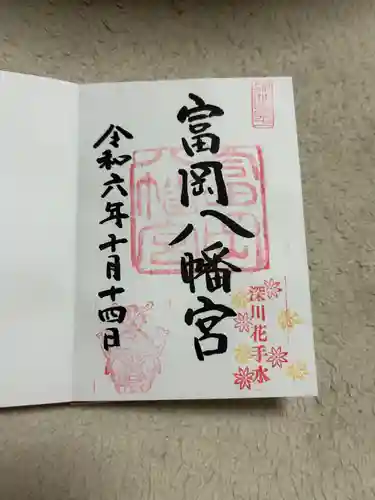 富岡八幡宮
深川花手水
令和六年十月十四日